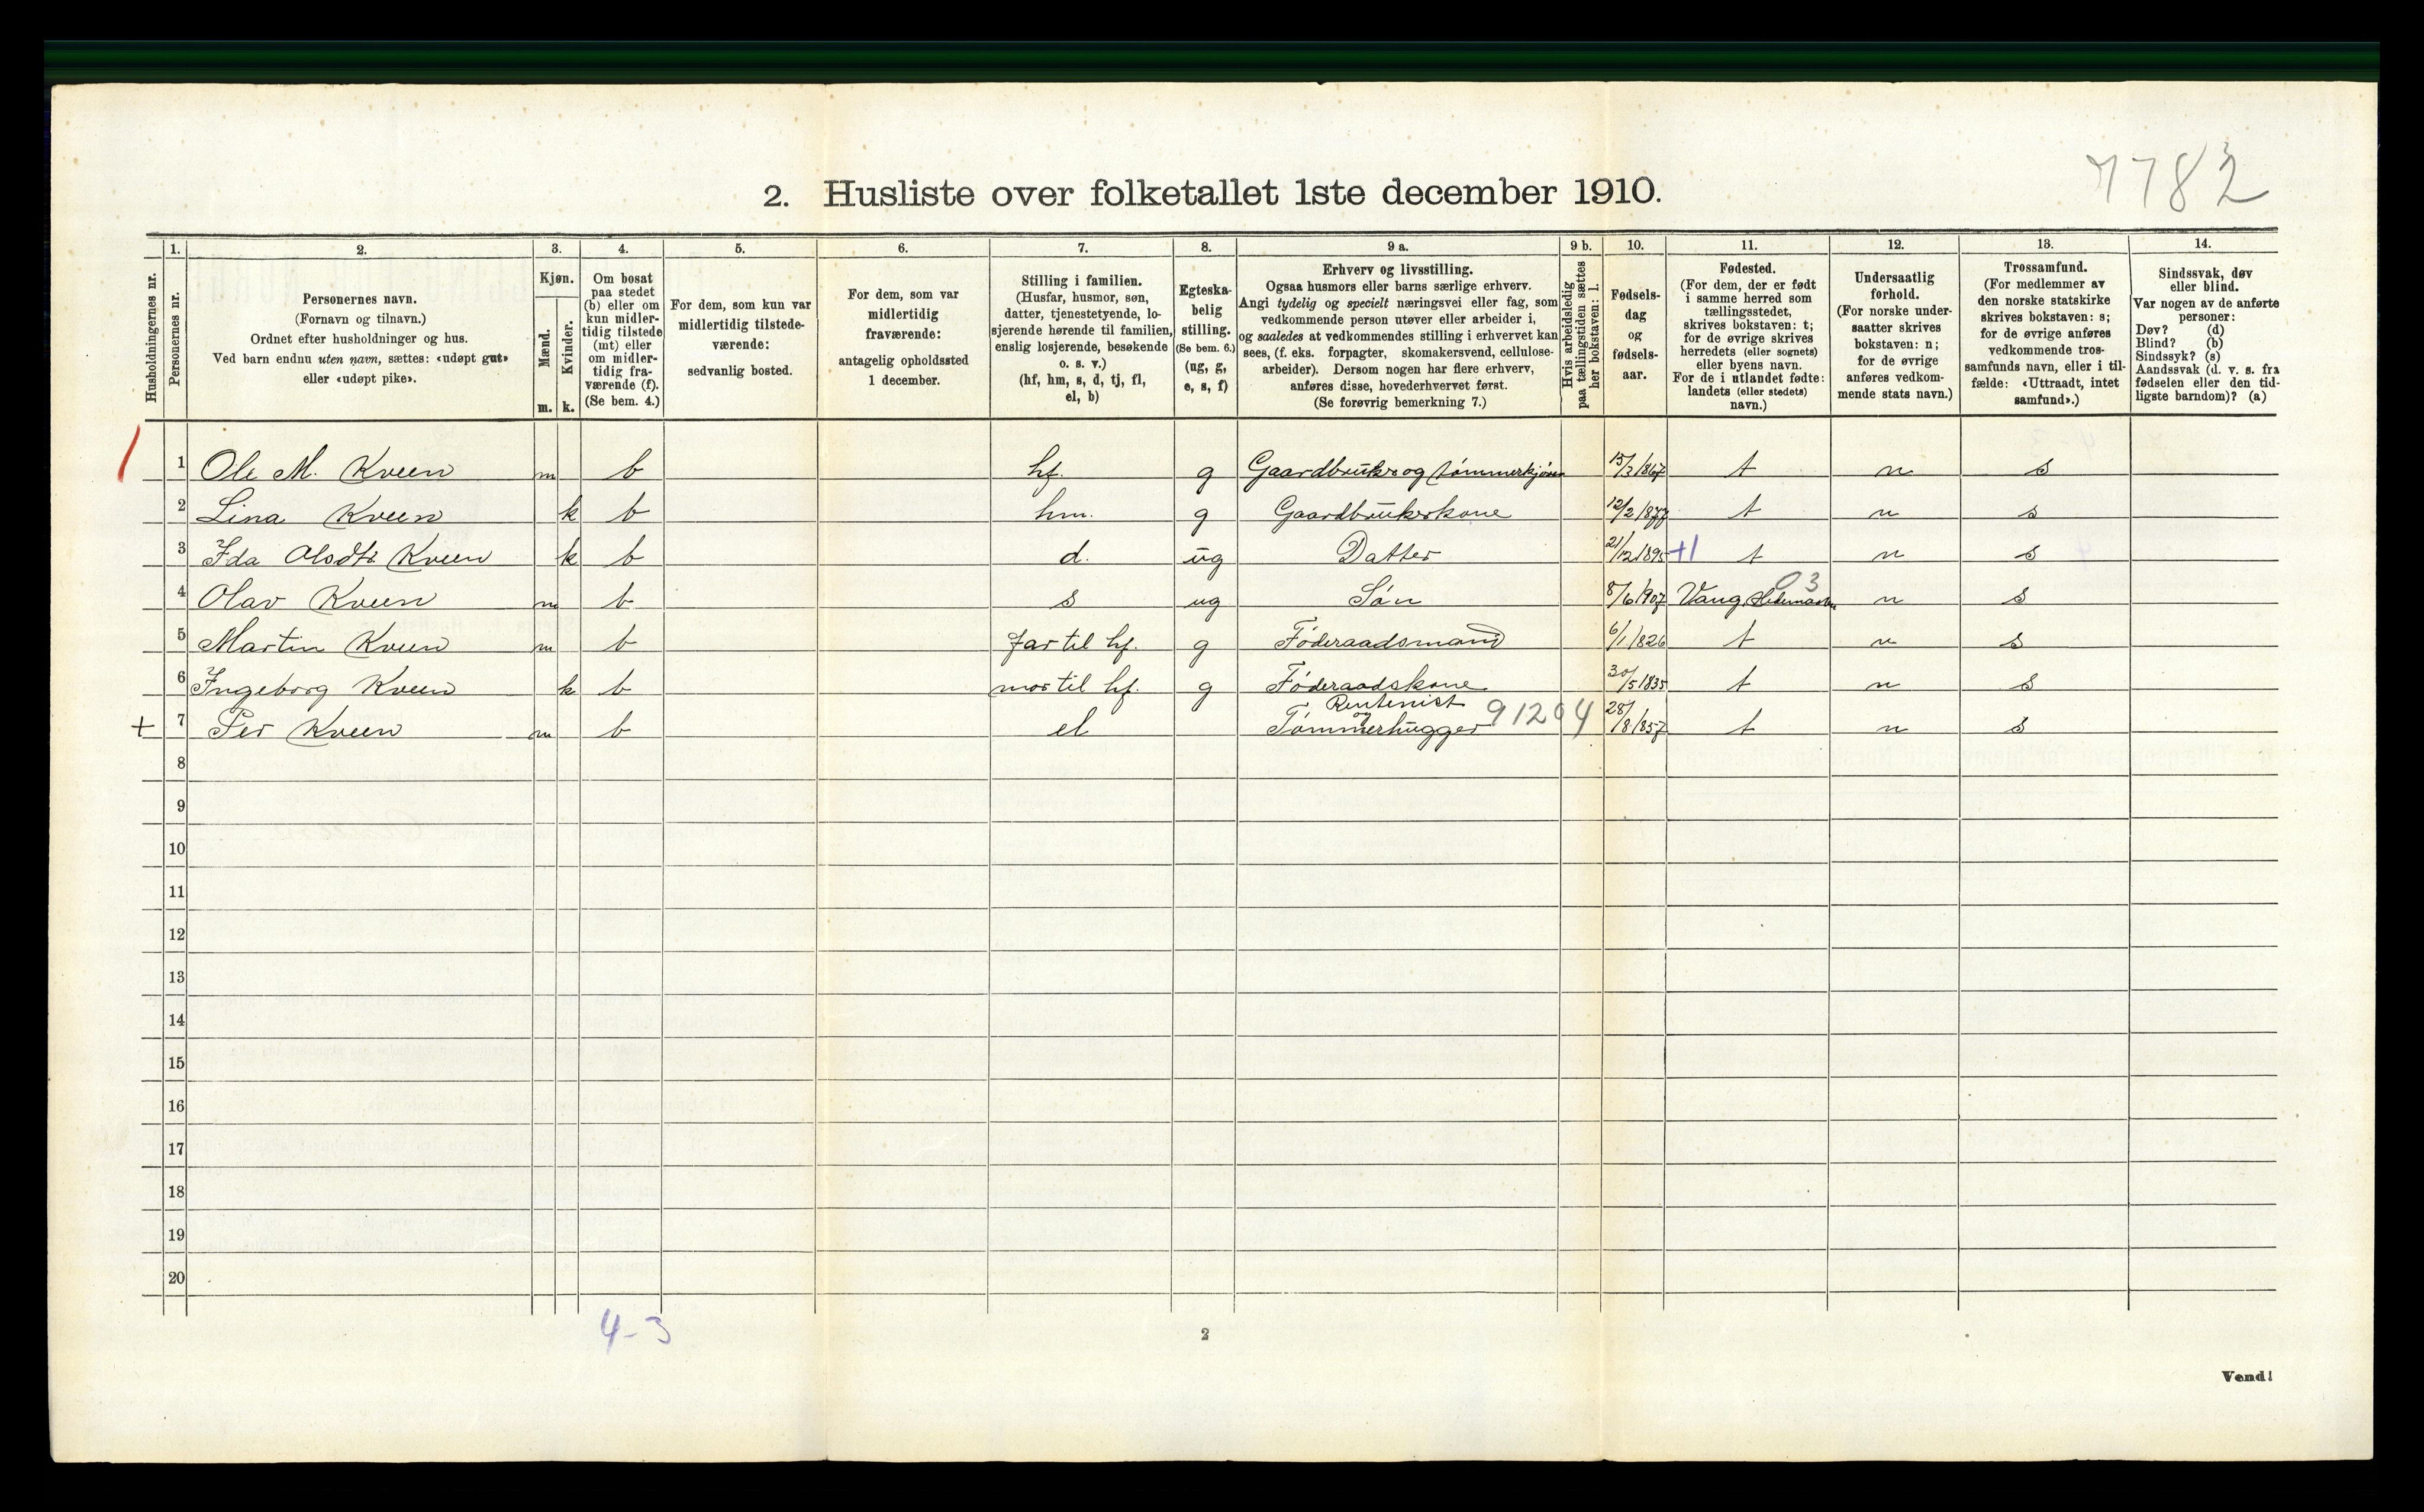 7782
2. Husliste over folketallet 1ste december 1910.
Husholdningernes nr.
1.
Personernes nr.
2.
Personernes navn.
(Fornavn og tilnavn.)
Ordnet efter husholdninger og hus.
Ved barn endnu uten navn, sættes: «udøpt gut»
eller «udøpt pike».
3.
Kjøn.
Mænd.
m.
Kvinder.
k.
4.
Om bosat
paa stedet
(b) eller om
kun midler-
tidig tilstede
(mt) eller
om midler-
tidig fra-
værende (f).
(Se bem. 4.)
5.
For dem, som kun var
midlertidig tilstede-
værende:
sedvanlig bosted.
6.
For dem, som var
midlertidig
fraværende:
antagelig opholdssted
1 december.
7.
Stilling i familien.
(Husfar, husmor, søn,
datter, tjenestetyende, lo-
sjerende hørende til familien,
enslig losjerende, besøkende
o. s. v.)
(hf, hm, s, d, tj, fl,
el, b)
8.
Egteska-
belig
stilling.
(Se bem. 6.)
(ug, g,
e, s, f)
9 a.
Erhverv og livsstilling.
Ogsaa husmors eller barns særlige erhverv.
Angi tydelig og specielt næringsvei eller fag, som
vedkommende person utøver eller arbeider i,
og saaledes at vedkommendes stilling i erhvervet kan
sees, (f. eks. forpagter, skomakersvend, cellulose-
arbeider). Dersom nogen har flere erhverv,
anføres disse, hovederhvervet først.
(Se forøvrig bemerkning 7.)
9 b.
Hvis arbeidsledig
paa tællingstiden sættes
her bokstaven: l.
10.
Fødsels-
dag
og
fødsels-
aar.
11.
Fødested.
(For dem, der er født
i samme herred som
tællingsstedet,
skrives bokstaven: t;
for de øvrige skrives
herredets (eller sognets)
eller byens navn.
For de i utlandet fødte:
landets (eller stedets)
navn.)
12.
Undersaatlig
forhold.
(For norske under-
saatter skrives
bokstaven: n;
for de øvrige
anføres vedkom-
mende stats navn.)
13.
Trossamfund.
(For medlemmer av
den norske statskirke
skrives bokstaven: s;
for de øvrige anføres
vedkommende tros-
samfunds navn, eller i til-
fælde: «Uttraadt, intet
samfund».)
14.
Sindssvak, døv
eller blind.
Var nogen av de anførte
personer:
Døv? (d)
Blind? (b)
Sindssyk? (s)
Aandssvak (d. v. s. fra
fødselen eller den tid-
ligste barndom)? (a)
1 Ole M. Kveen m b hf. g Gaardbruker og tømmerkjører 15/3 1867 t n s
2 Lina Kveen k b hm. g Gaardbrukerkone 12/2 1877 t n s
3 Ida Olsdtr Kveen k b d. ug Datter 21/12 1895 +1 t n s
03
4 Olav Kveen m b s ug Søn 8/6 1907 Vang Hedemarken n s
5 Martin Kveen m b far til hf. g Føderaadsmand 6/1 1826 t n s
6 Ingeborg Kveen k b mor til hf. g Føderaadskone 30/5 1835 t n s
Rentenist
og
+ 7 Per Kveen m b el Tømmerhugger 91204 28/8 1857 t n s
8
9
10
11
12
13
14
15
16
17
18
19
20
4-3
2
Vend!